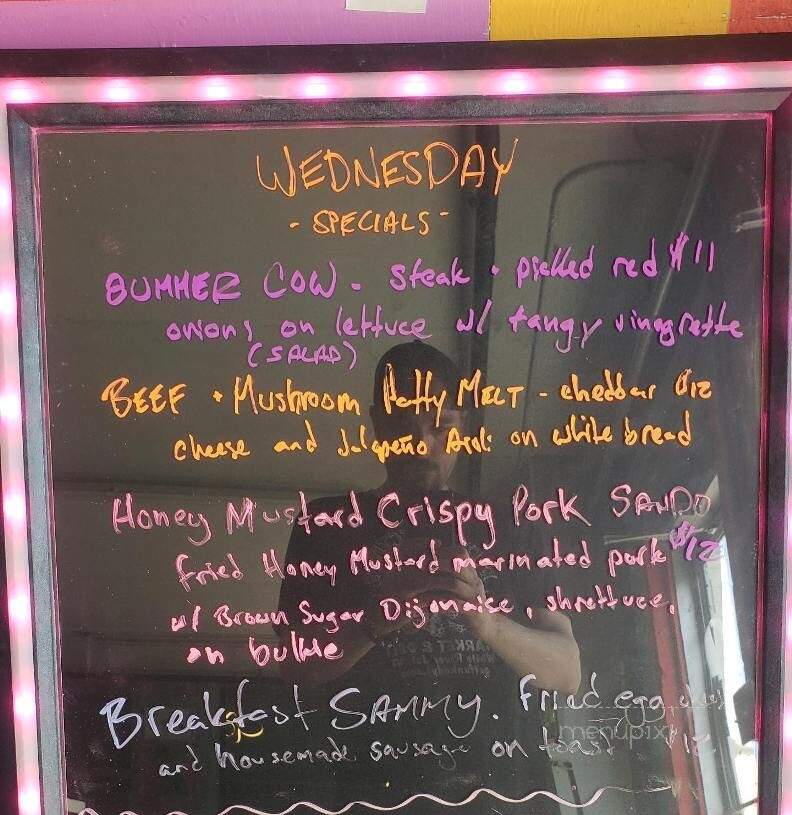 WEDNESDAY
- SPECIALS -
BUMMER COW - Steak + pickled red $11
onions on lettuce w/ tangy vinagrette
(SALAD)
BEEF + Mushroom Patty MELT - cheddar $12
cheese and Jalapeño Aioli on white bread
Honey Mustard Crispy Pork SANDO
fried Honey Mustard marinated pork $12
w/ Brown Sugar Dijonaise, shrettuce,
on bulkie
Breakfast SAMMY. Fried egg,
and housemade sausage on toast $12
menupix